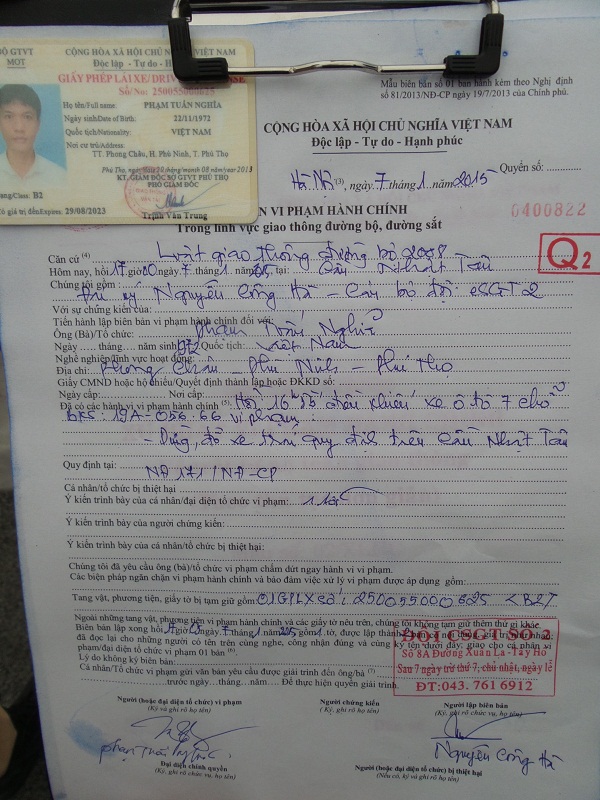 BỘ GTVT
MOT
CỘNG HÒA XÃ HỘI CHỦ NGHĨA VIỆT NAM
Độc lập - Tự do - Hạnh phúc
GIẤY PHÉP LÁI XE/DRIVER'S LICENSE
Số/No: 250055000625
Họ tên/Full name: PHẠM TUẤN NGHĨA
Ngày sinh/Date of Birth: 22/11/1972
Quốc tịch/Nationality: VIỆT NAM
Nơi cư trú/Address:
TT. Phong Châu, H. Phù Ninh, T. Phú Thọ
Phú Thọ, ngày/date 30 tháng/month 08 năm/year 2013
KT. GIÁM ĐỐC SỞ GTVT PHÚ THỌ
PHÓ GIÁM ĐỐC
Hạng/Class: B2
Có giá trị đến/Expires: 29/08/2023
Trịnh Văn Trung
Mẫu biên bản số 01 ban hành kèm theo Nghị định
số 81/2013/NĐ-CP ngày 19/7/2013 của Chính phủ.
CỘNG HÒA XÃ HỘI CHỦ NGHĨA VIỆT NAM
Độc lập - Tự do - Hạnh phúc
Quyển số:
Hà Nội (3), ngày 7 tháng 1 năm 2015
N VI PHẠM HÀNH CHÍNH
0400822
Trong lĩnh vực giao thông đường bộ, đường sắt
Q2
Căn cứ (4) Luật giao thông đường bộ 2008
Hôm nay, hồi 17 giờ 00 ngày 7 tháng 1 năm 2015, tại: Cầu Nhật Tân
Chúng tôi gồm: Đại úy Nguyễn Công Hà - Cán bộ đội CSGT 2
Với sự chứng kiến của:
Tiến hành lập biên bản vi phạm hành chính đối với:
Ông (Bà)/Tổ chức: Phạm Tuấn Nghĩa
Ngày tháng năm sinh 1972 Quốc tịch: Việt Nam
Nghề nghiệp/lĩnh vực hoạt động:
Địa chỉ: Phong Châu - Phù Ninh - Phú Thọ
Giấy CMND hoặc hộ chiếu/Quyết định thành lập hoặc ĐKKD số:
Ngày cấp: Nơi cấp:
Đã có các hành vi vi phạm hành chính (5): Hồi 16h55 điều khiển xe ô tô 7 chỗ
BKS: 19A-056.66 vi phạm:
- Dừng, đỗ xe trái quy định trên Cầu Nhật Tân
Quy định tại:
NĐ 171/NĐ-CP
Cá nhân/tổ chức bị thiệt hại
Ý kiến trình bày của cá nhân/đại diện tổ chức vi phạm:
Ý kiến trình bày của người chứng kiến:
Ý kiến trình bày của cá nhân/tổ chức bị thiệt hại:
Chúng tôi đã yêu cầu ông (bà)/tổ chức vi phạm chấm dứt ngay hành vi vi phạm.
Các biện pháp ngăn chặn vi phạm hành chính và bảo đảm việc xử lý vi phạm được áp dụng gồm:
Tang vật, phương tiện, giấy tờ bị tạm giữ gồm: 01 GPLX số: 250055000625 <B2>
Ngoài những tang vật, phương tiện vi phạm hành chính và các giấy tờ nêu trên, chúng tôi không tạm giữ thêm thứ gì khác.
Biên bản lập xong hồi 17 giờ ngày 7 tháng 1 năm 2015 gồm 1 tờ, được lập thành
đã đọc lại cho những người có tên trên cùng nghe, công nhận đúng và cùng ký tên dưới đây; giao cho cá nhân vi
phạm/đại diện tổ chức vi phạm 01 bản (6).
Lý do không ký biên bản:
Cá nhân/Tổ chức vi phạm gửi văn bản yêu cầu được giải trình đến ông/bà (7)
trước ngày tháng năm Để thực hiện quyền giải trình.
ĐỘI CSGT SỐ 2
Số 8A Đường Xuân La-Tây Hồ
Sau 7 ngày trừ thứ 7, chủ nhật, ngày lễ
ĐT:043. 761 6912
Người (hoặc đại diện tổ chức) vi phạm
(Ký và ghi rõ họ tên)
Người chứng kiến
(Ký, ghi rõ họ tên)
Người lập biên bản
(Ký, ghi rõ chức vụ, họ tên)
Phạm Tuấn Nghĩa
Nguyễn Công Hà
Đại diện chính quyền
(Ký, ghi rõ chức vụ, họ tên)
Người (hoặc đại diện tổ chức) bị thiệt hại
(Nếu có, ký và ghi rõ họ tên)